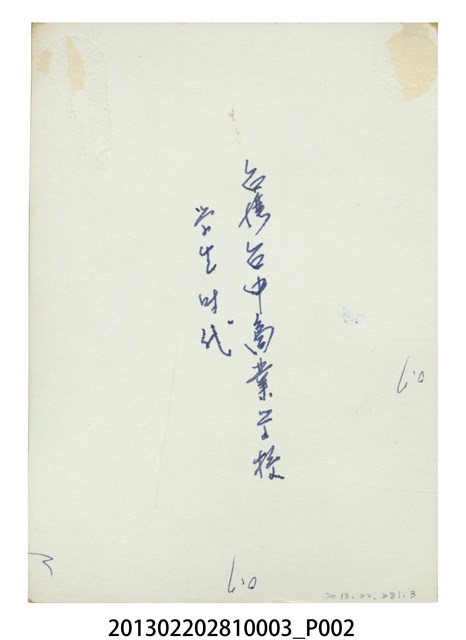 台湾台中商業学校
学生时代
1:0
1:0
2013.22.281.3
201302202810003_P002